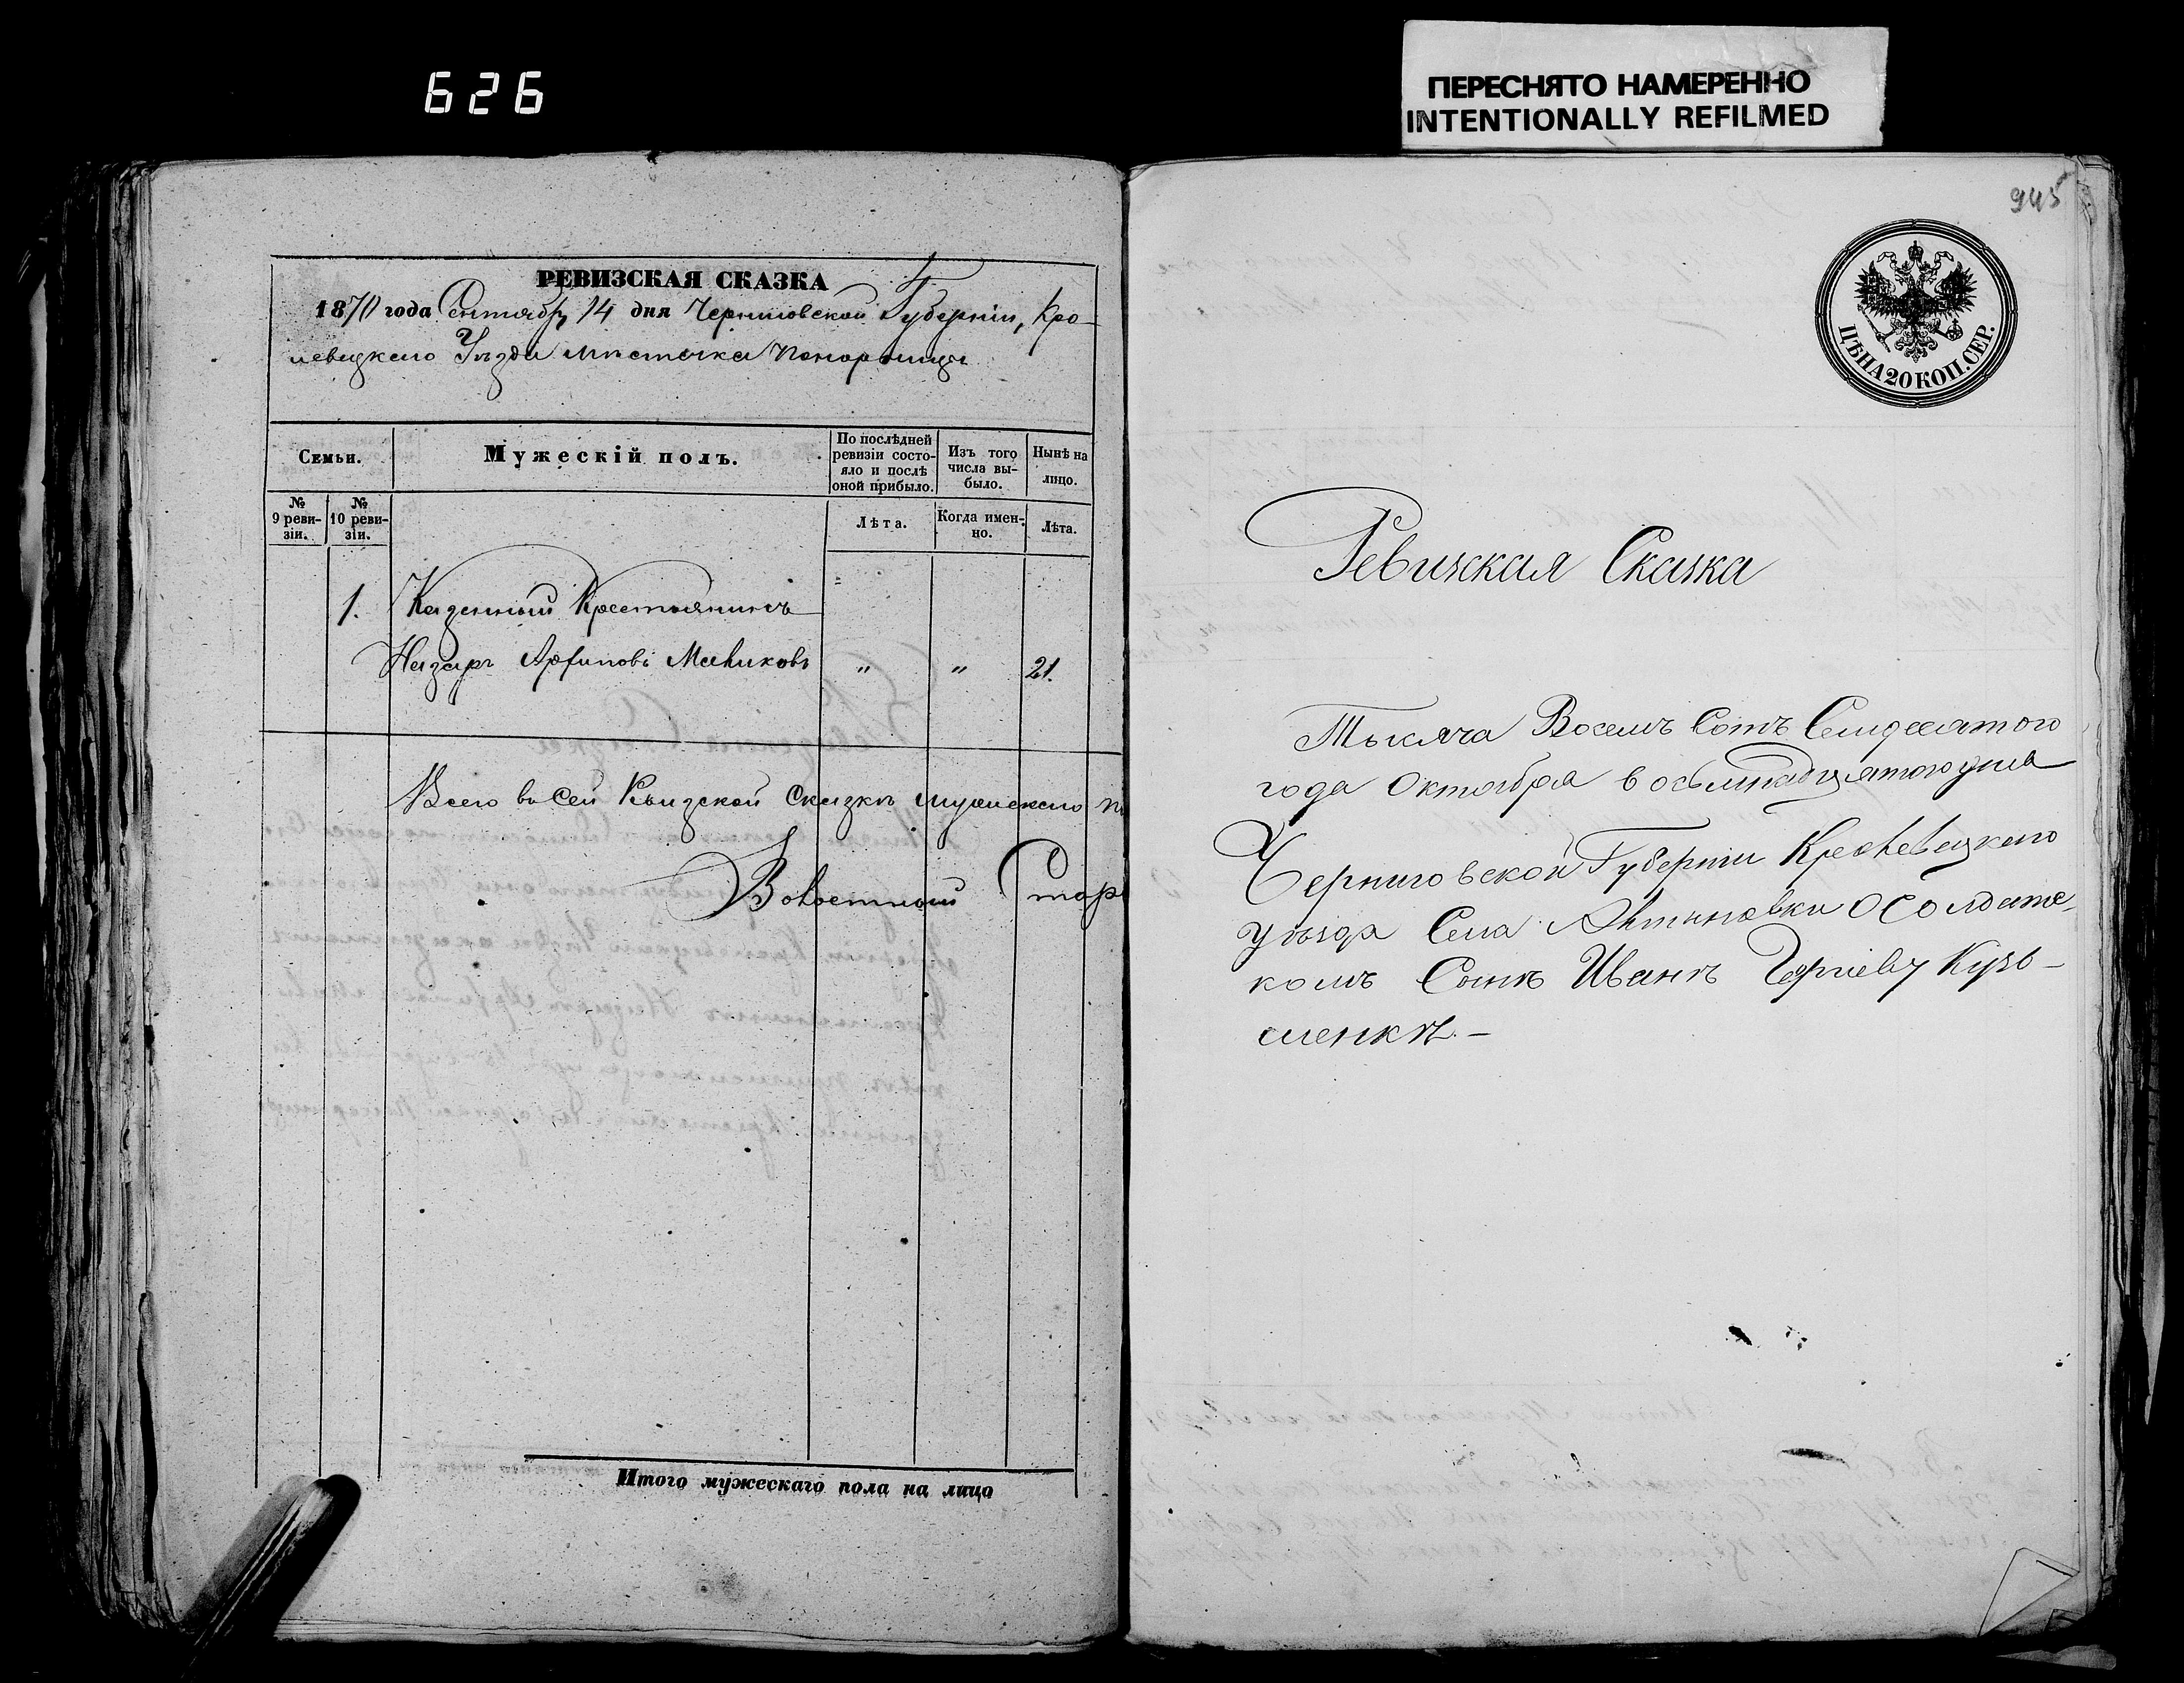 626
ПЕРЕСНЯТО НАМЕРЕННО
INTENTIONALLY REFILMED
РЕВИЗСКАЯ СКАЗКА
1870 года Сентября 14 дня Черниговской Губерніи, Кро-
левецкого Уѣзда мѣстечка Понорницы
Семьи.
Мужескій полъ.
По послѣдней
ревизіи состо-
яло и послѣ
оной прибыло.
Изъ того
числа вы-
было.
Нынѣ на
лицо.
№
9 реви-
зіи.
№
10 реви-
зіи.
Лѣта.
Когда имен-
но.
Лѣта.
1. Казенный Крестьянинъ
Назаръ Архиповъ " " 21.
Всего въ сей сказкѣ мужеского
Волостный Стар
Итого мужескаго пола на лицо
945
ЦѢНА 20 КОП. СЕР.
Ревизская Сказка
Тысяча Восемъ Сотъ Семидесятого
года Октября восьмнадцятого дня
Черниговской Губерніи Кролевецкого
уѣзда Села о Солдатс-
комъ Сынѣ Иванѣ Кузь-
менкѣ.–